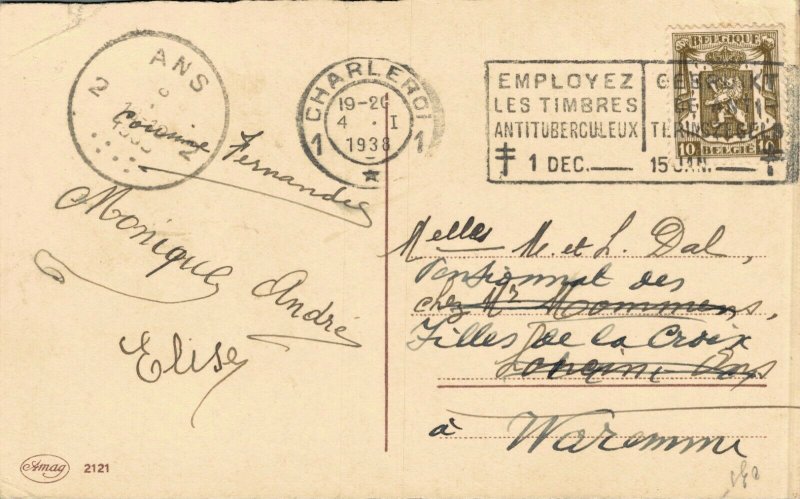 ANS
2 2
Corinne
Fernande
Monique
André
Elise
Amag 2121
CHARLEROI
19-20
4 · I
1938
1 1
EMPLOYEZ
LES TIMBRES
ANTITUBERCULEUX
1 DEC.
GEBRUIKT
TERINGZEGELS
15 JAN.
BELGIQUE
10 BELGIË 10
Melles M. et L. Dal,
Pensionnat des
chez Mr Mommens,
Filles de la Croix
Loncin-Ans
à Waremme